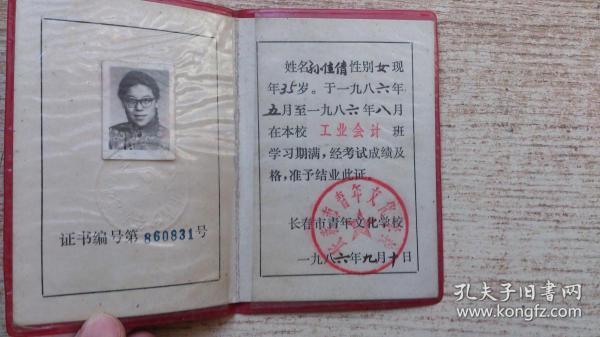 证书编号第860831号
姓名孙佳倩性别女现
年35岁。于一九八六年
五月至一九八六年八月
在本校 工业会计 班
学习期满，经考试成绩及
格，准予结业此证。
长春市青年文化学校
一九八六年九月十日
长春市青年文化学校
孔夫子旧书网
www.kongfz.com